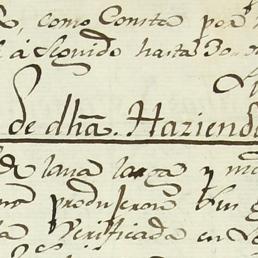 como Consta por
á Seguido hasta 30.
de dhã. Haziend
de lana larga y
produseron
Verificada en